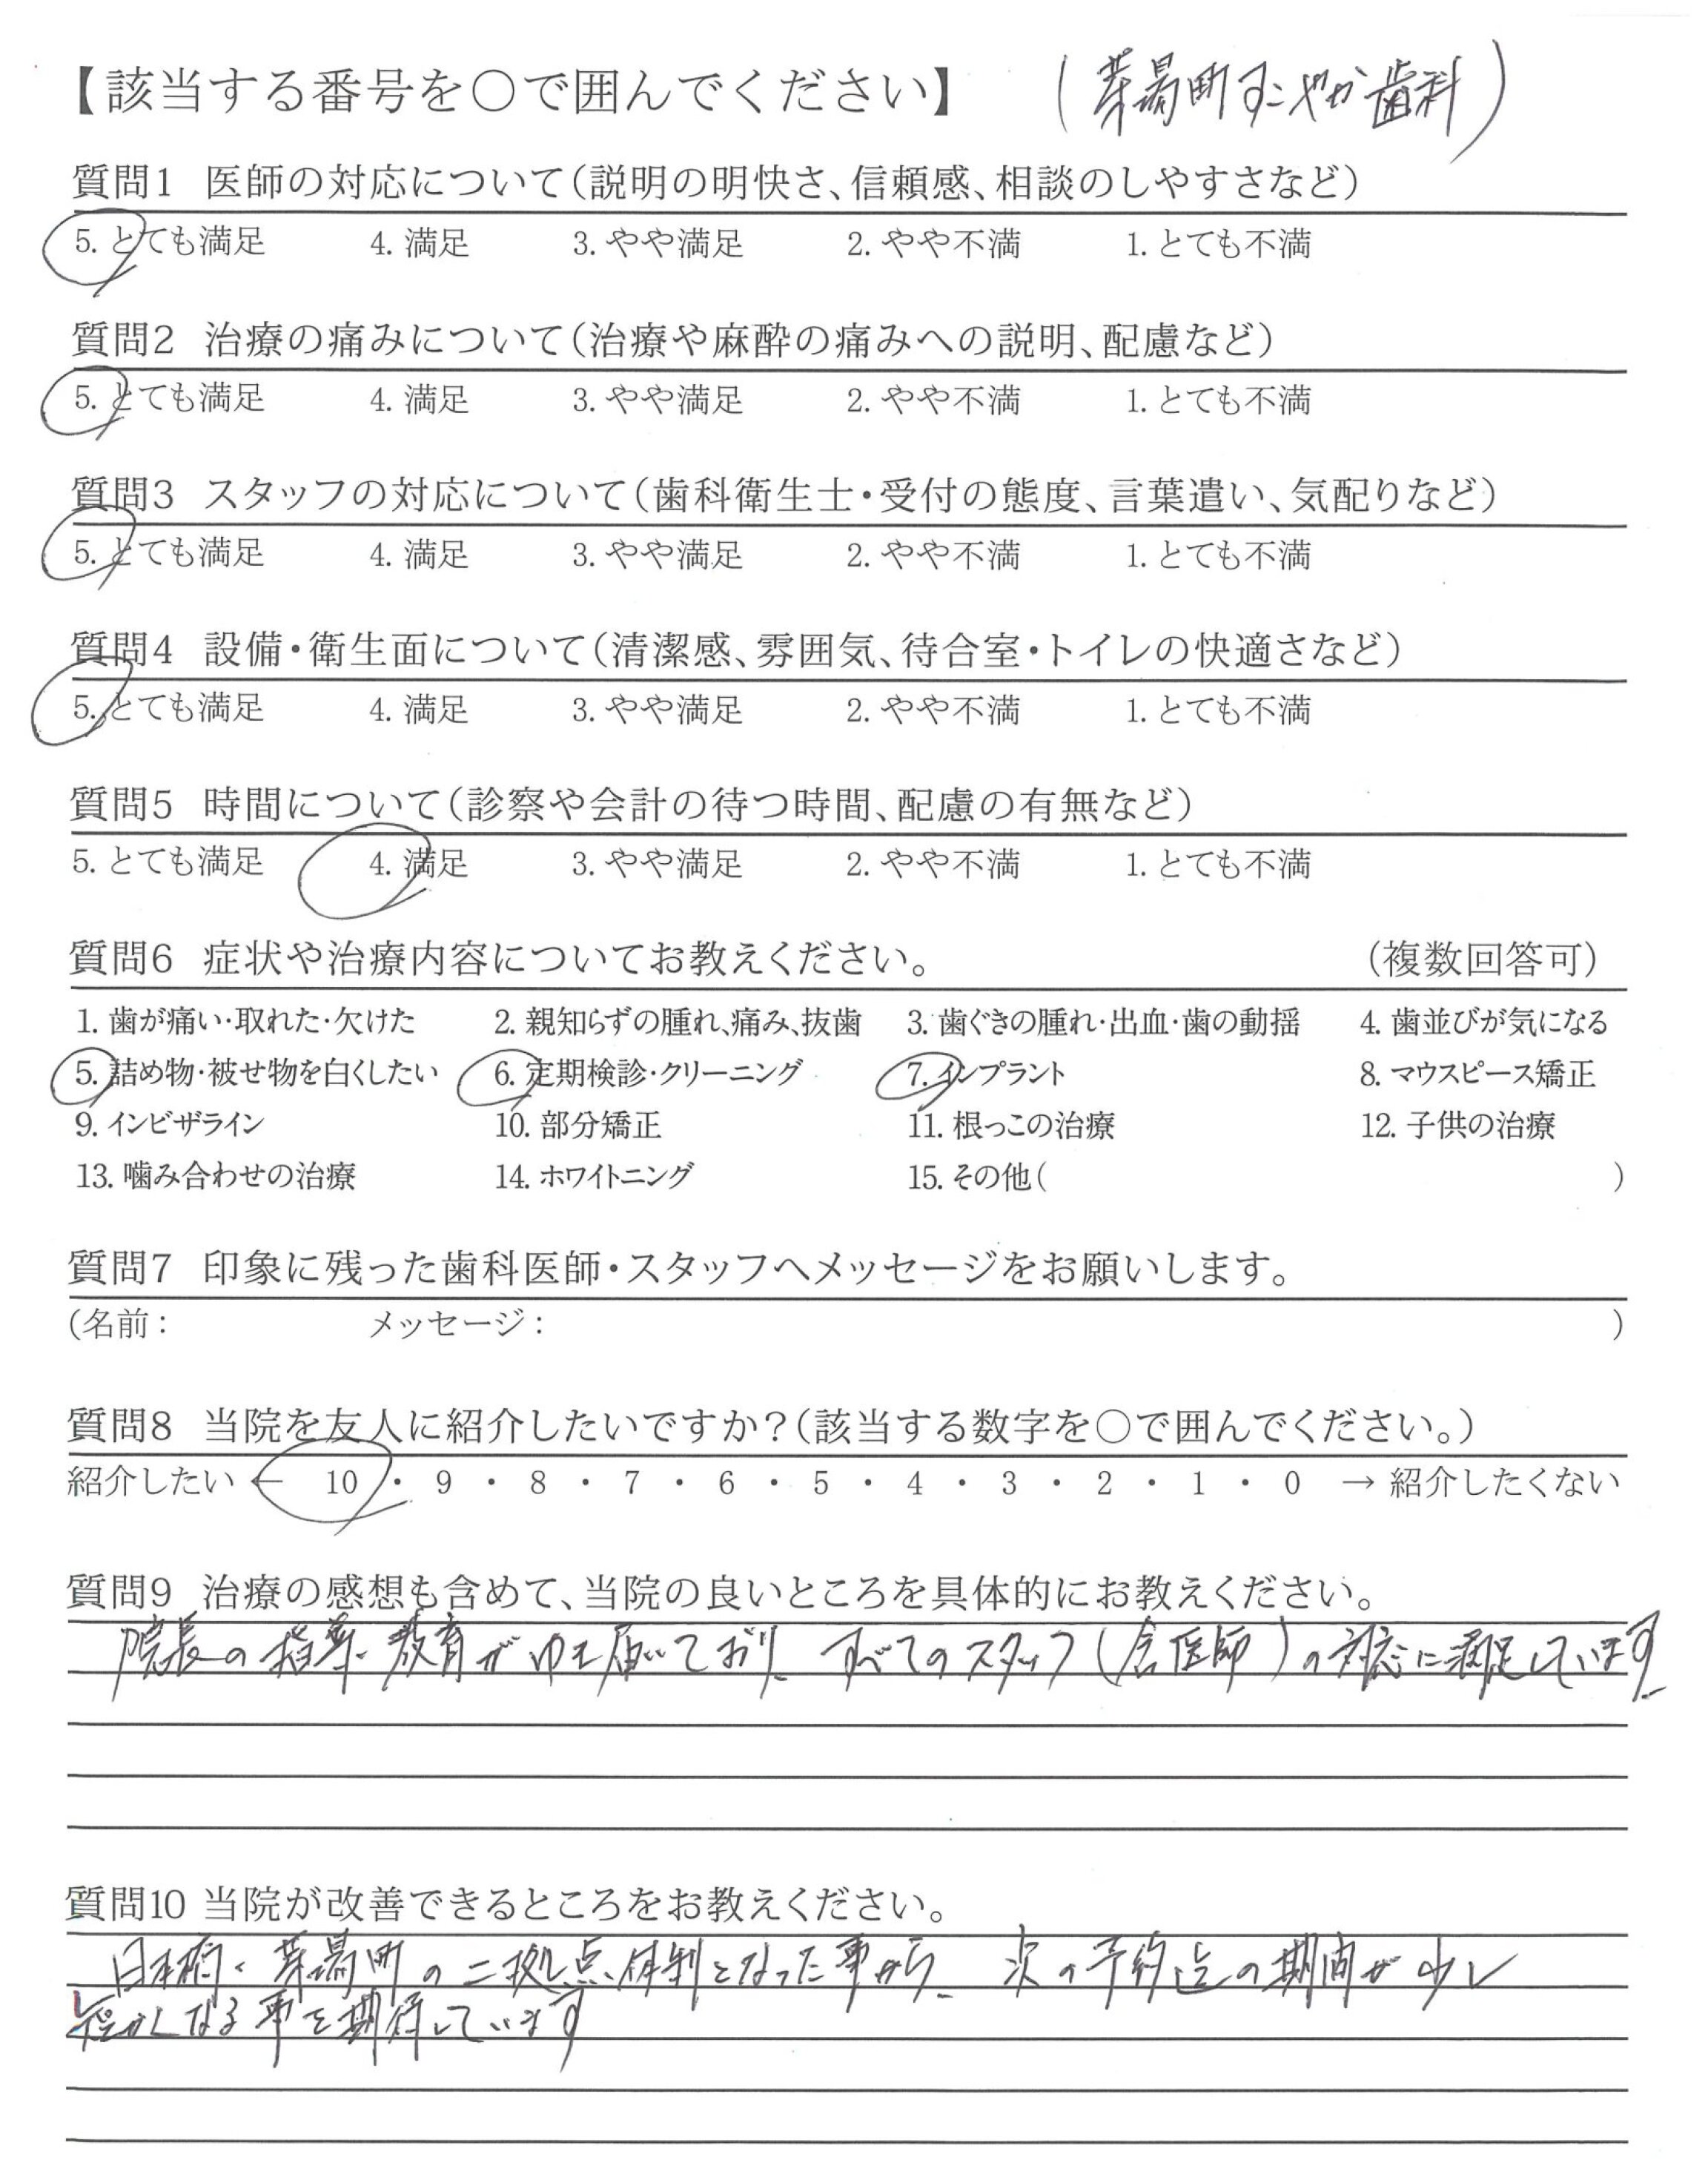 【該当する番号を○で囲んでください】 (茅場町すこやか歯科)
質問1 医師の対応について(説明の明快さ、信頼感、相談のしやすさなど)
5. とても満足 4. 満足 3. やや満足 2. やや不満 1. とても不満
質問2 治療の痛みについて(治療や麻酔の痛みへの説明、配慮など)
5. とても満足 4. 満足 3. やや満足 2. やや不満 1. とても不満
質問3 スタッフの対応について(歯科衛生士・受付の態度、言葉遣い、気配りなど)
5. とても満足 4. 満足 3. やや満足 2. やや不満 1. とても不満
質問4 設備・衛生面について(清潔感、雰囲気、待合室・トイレの快適さなど)
5. とても満足 4. 満足 3. やや満足 2. やや不満 1. とても不満
質問5 時間について(診察や会計の待つ時間、配慮の有無など)
5. とても満足 4. 満足 3. やや満足 2. やや不満 1. とても不満
質問6 症状や治療内容についてお教えください。 (複数回答可)
1. 歯が痛い・取れた・欠けた 2. 親知らずの腫れ、痛み、抜歯 3. 歯ぐきの腫れ・出血・歯の動揺 4. 歯並びが気になる
5. 詰め物・被せ物を白くしたい 6. 定期検診・クリーニング 7. インプラント 8. マウスピース矯正
9. インビザライン 10. 部分矯正 11. 根っこの治療 12. 子供の治療
13. 噛み合わせの治療 14. ホワイトニング 15. その他( )
質問7 印象に残った歯科医師・スタッフへメッセージをお願いします。
(名前: メッセージ: )
質問8 当院を友人に紹介したいですか?(該当する数字を○で囲んでください。)
紹介したい ← 10 ・ 9 ・ 8 ・ 7 ・ 6 ・ 5 ・ 4 ・ 3 ・ 2 ・ 1 ・ 0 → 紹介したくない
質問9 治療の感想も含めて、当院の良いところを具体的にお教えください。
院長の指導・教育がゆき届いており、すべてのスタッフ(含医師)の対応に満足しています。
質問10 当院が改善できるところをお教えください。
日本橋・茅場町の二拠点体制となった事から、次の予約迄の期間が少し
短かくなる事を期待しています